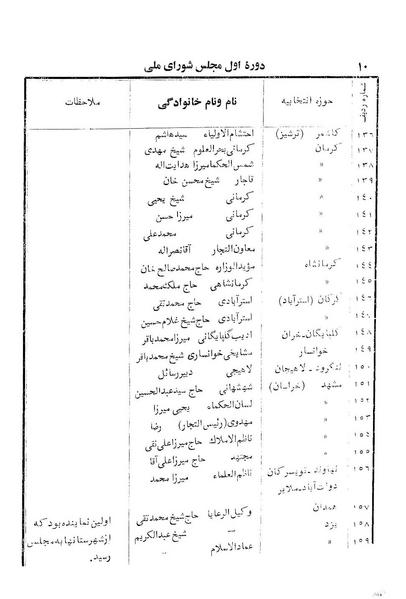 ۱۰ دورهٔ اول مجلس شورای ملی
شماره ردیف حوزه انتخابیه نام ونام خانوادگی ملاحظات
۱۳۶ کاشمر (ترشیز) احتشام‌الاولیاء سیدهاشم
۱۳۷ کرمان کرمانی بحرالعلوم شیخ مهدی
۱۳۸ » شمس‌الحکما میرزا هدایت‌اله
۱۳۹ » قاجار شیخ محسن خان
۱۴۰ » کرمانی شیخ یحیی
۱۴۱ » کرمانی میرزا حسن
۱۴۲ » کرمانی محمدعلی
۱۴۳ » معاون‌التجار آقانصراله
۱۴۴ کرمانشاه مؤیدالوزاره حاج محمدصالح خان
۱۴۵ » کرمانشاهی حاج ملک‌محمد
۱۴۶ گرگان (استرآباد) استرآبادی حاج محمدتقی
۱۴۷ » استرآبادی حاج شیخ غلامحسین
۱۴۸ گلپایگان - ادیب گلپایگانی میرزا محمدباقر
۱۴۹ خوانسار مشایخی خوانساری شیخ محمدباقر
۱۵۰ لنگرود - لاهیجان لاهیجی دبیررسائل
۱۵۱ مشهد (خراسان) شهشهانی حاج سیدعبدالحسین
۱۵۲ » لسان‌الحکماء یحیی میرزا
۱۵۳ » مهدوی (رئیس‌التجار) رضا
۱۵۴ » ناظم‌الاملاک حاج میرزا علی‌نقی
۱۵۵ » مجتهد حاج میرزا علی‌آقا
۱۵۶ نهاوند - تویسرکان ناظم‌العلماء میرزا محمد
دولت‌آباد - ملایر
۱۵۷ همدان وکیل‌الرعایا حاج شیخ محمدتقی اولین نماینده بود که
۱۵۸ یزد شیخ عبدالکریم ازشهرستانها به مجلس
۱۵۹ » عمادالاسلام رسید.